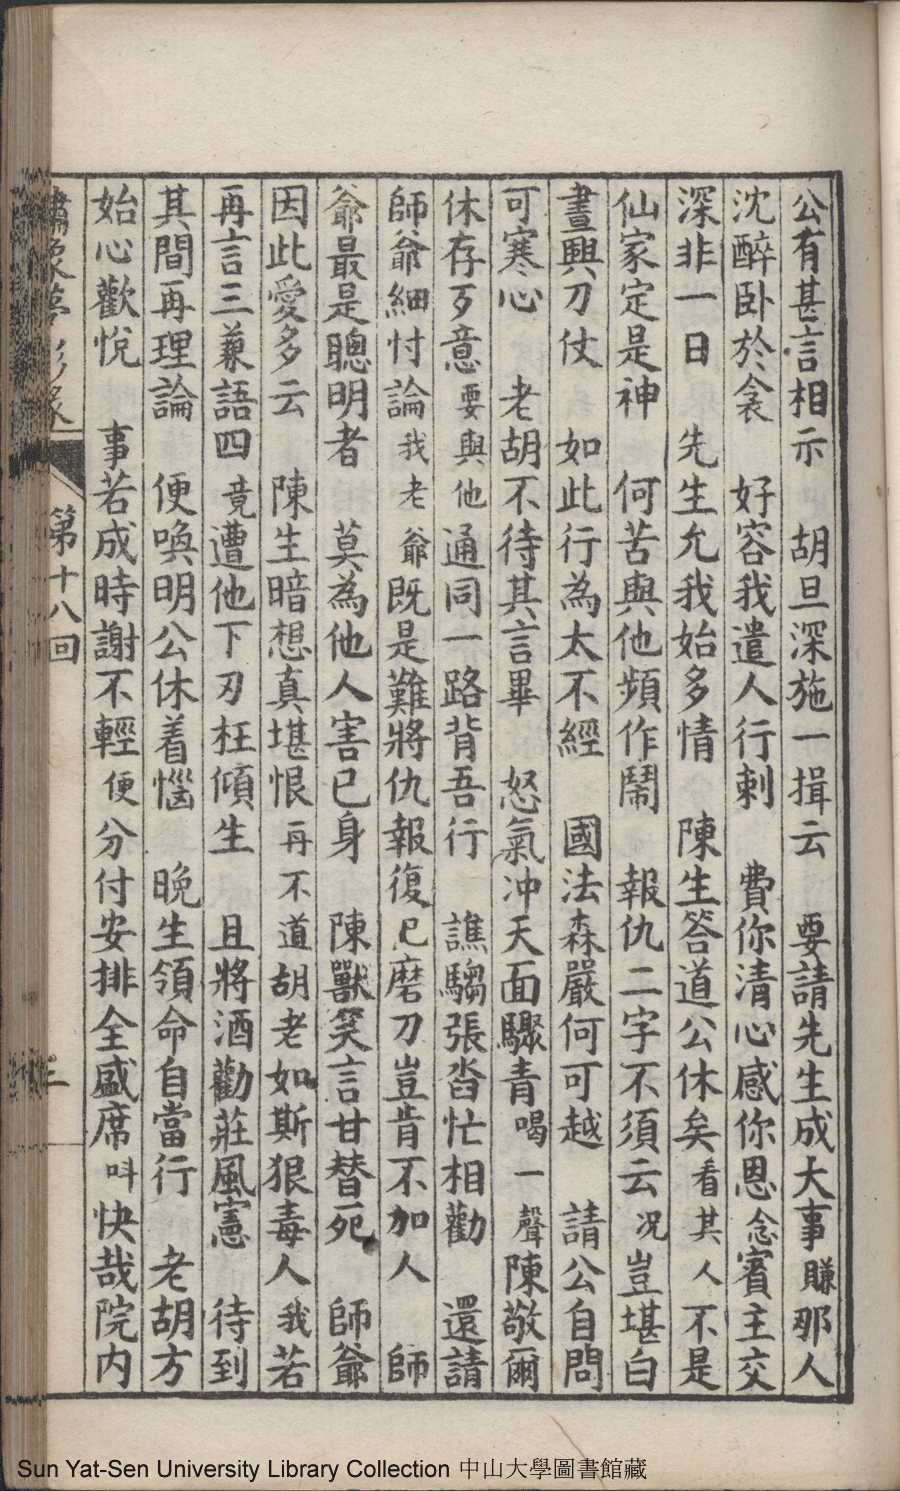 公有甚言相示　胡旦深施一揖云　要請先生成大事賺那人
沈醉卧於衾　好容我遣人行刺　費你清心感你恩念賓主交
深非一日　先生允我始多情　陳生答道公休矣看其人不是
仙家定是神　何苦與他頻作鬧　報仇二字不須云况豈堪白
晝興刀仗　如此行為太不經　國法森嚴何可越　請公自問
可寒心　老胡不待其言畢　怒氣冲天面驟青喝一聲陳敬爾
休存歹意要與他通同一路背吾行　譙騶張沓忙相勸　還請
師爺細忖論我老爺既是難將仇報復已磨刀豈肯不加人　師
爺最是聰明者　莫為他人害已身　陳獸笑言甘替死　師爺
因此愛多云　陳生暗想真堪恨再不道胡老如斯狠毒人我若
再言三兼語四竟遭他下刃枉傾生　且將酒勸莊風憲　待到
其間再理論　便喚明公休着惱　晚生領命自當行　老胡方
始心歡悅　事若成時謝不輕便分付安排全盛席呌快哉院内
第十八回
Sun Yat-Sen University Library Collection 中山大學圖書館藏